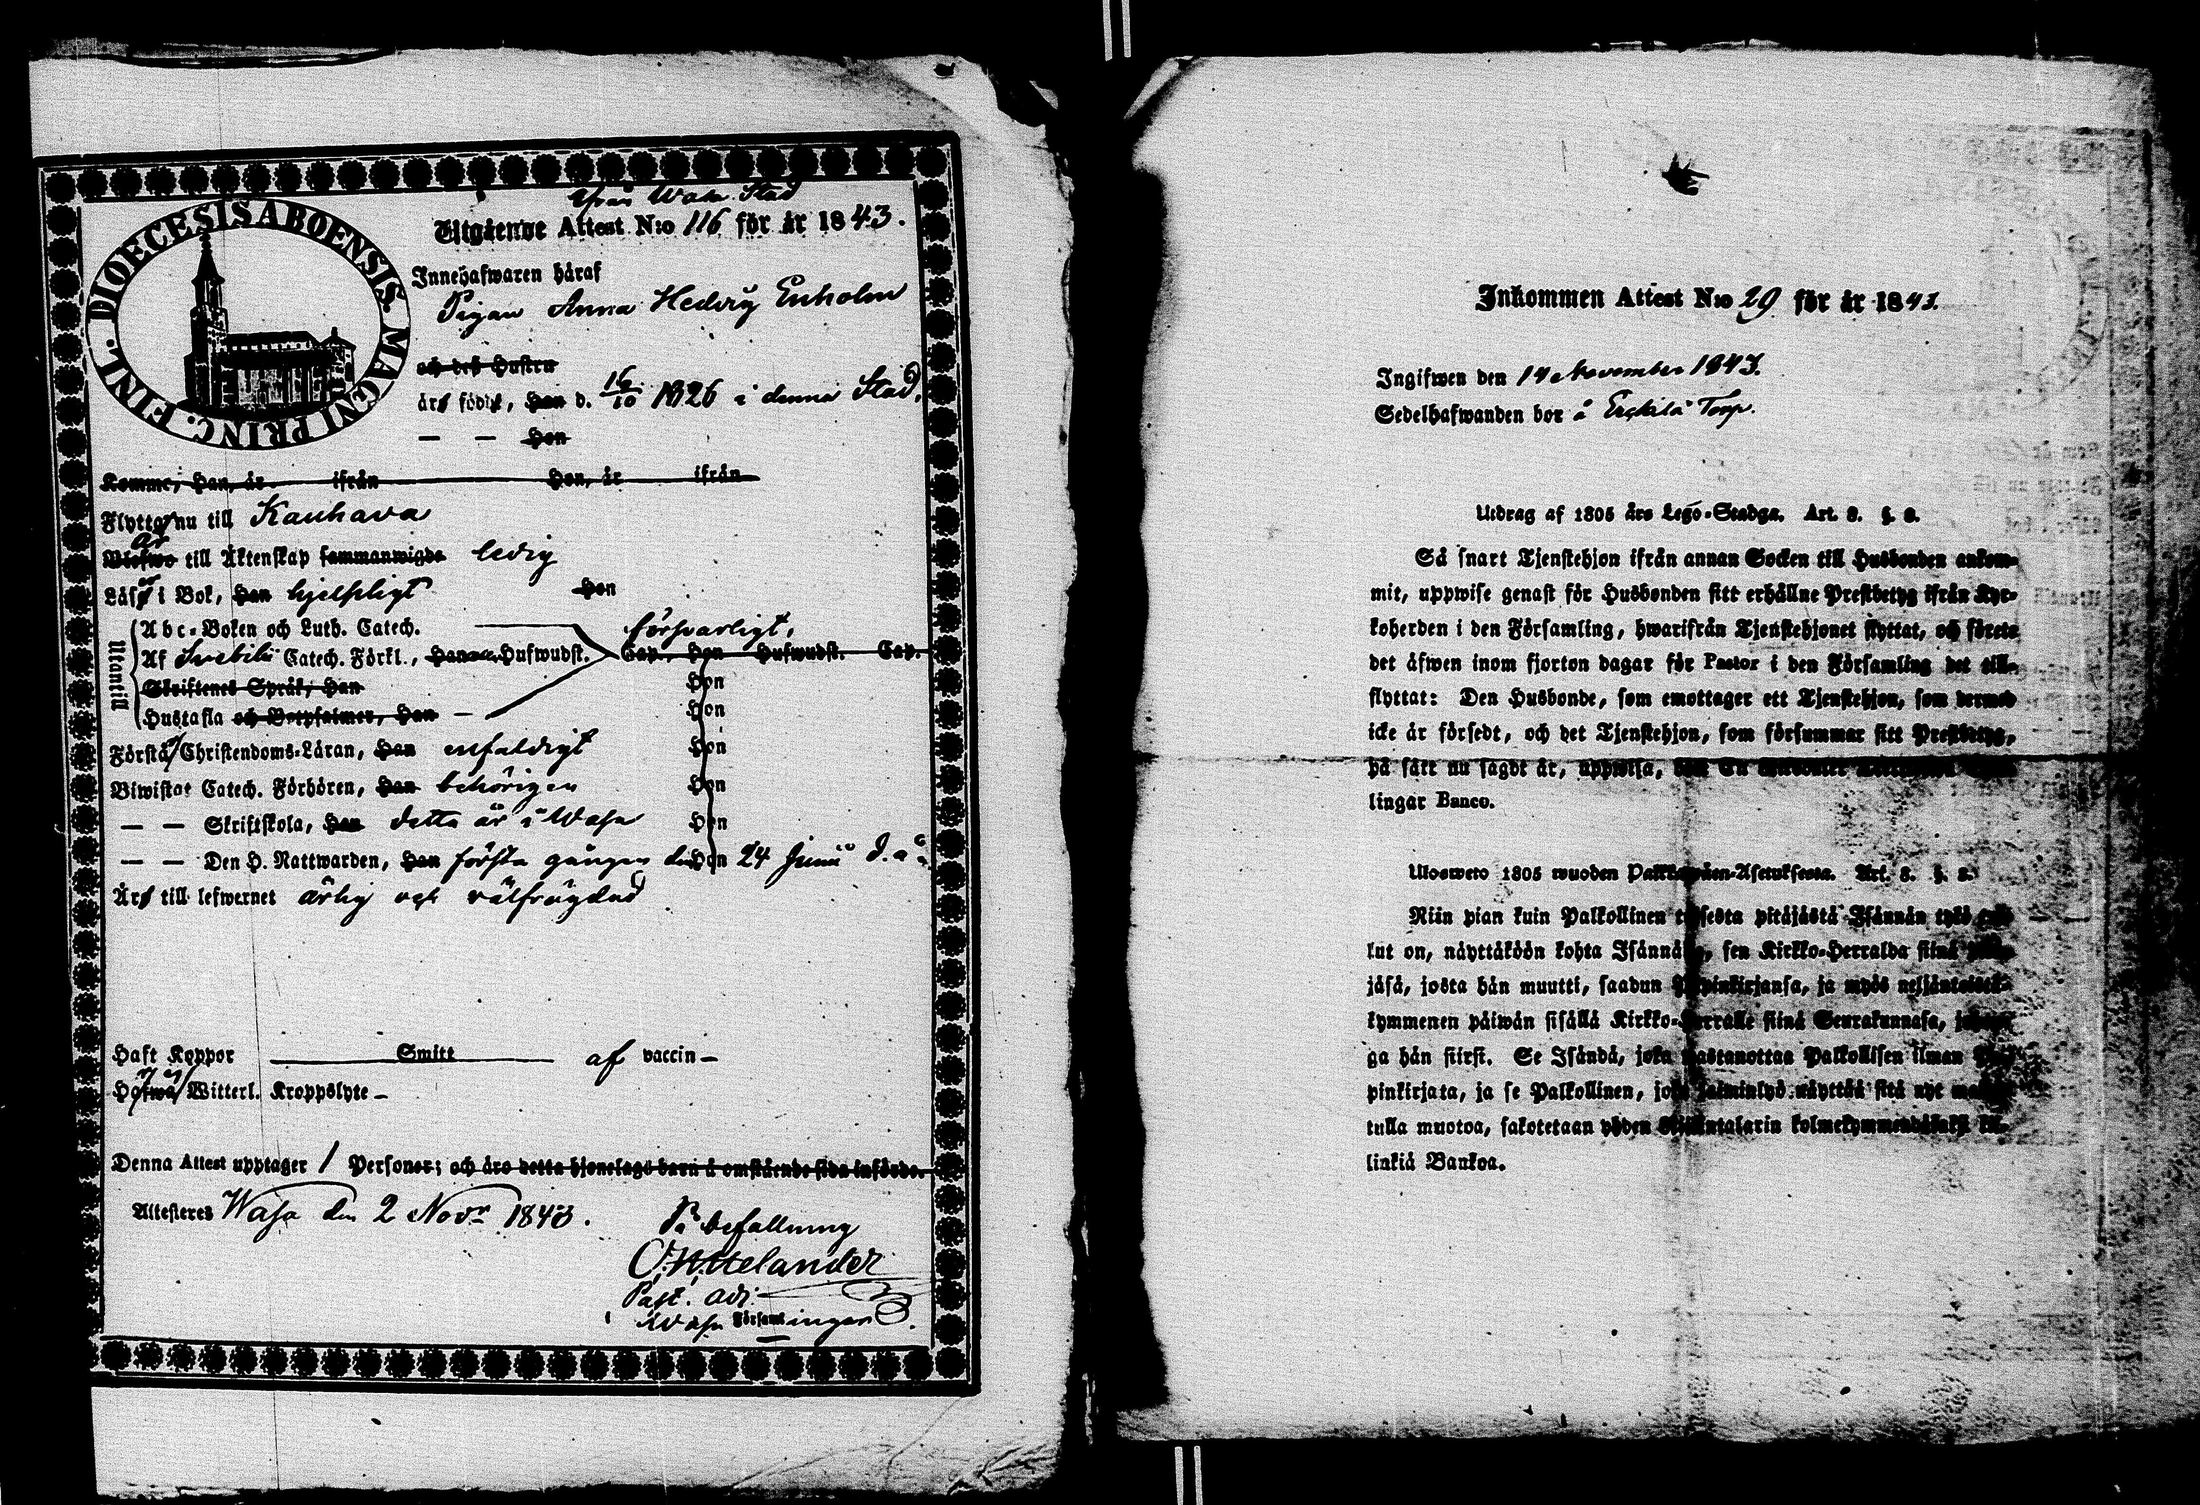 DIOECESIS ABOENSIS. MAGNI PRINC. FINL.
ifrån Wasa Stad
Utgående Attest N:o 116 för år 1843.
Innehafwaren håraf
Pigan Anna Hedvig Enholm
och deß Hustru
år född, han d. 16/10 1826 i denna Stad,
— — Hon
Komme, Han, år ifrån Hon, år ifrån
Flyttar nu till Kauhava
är
Blefwo till Äktenskap sammanwigde ledig
Läser i Bok, Han hjelpligt Hon
Utantill
Abc-Boken och Luth. Catech. försvarligt,
Af Svebilii Catech. Förkl., Han Hufwudst. Cap., Hon Hufwudst. Cap.
Skriftenes Språk, Han Hon
Hustafla och Botpsalmer, Han — Hon
Förstår Christendoms-Läran, Han enfaldigt Hon
Biwistat Catech. Förhören, Han behörigen Hon
— — Skriftskola, Han detta år i Wasa Hon
— — Den H. Nattwarden, Han första gången den Hon 24 Junii d. å.
År till lefwernet ärlig och välfrägdad
Haft Koppor Smitt af vaccin —
Witterl. Kroppslyte —
Denna Attest upptager 1 Personer; och äro detta hjonelags barn å omstående sida införde.
Attesteres Wasa den 2 Novr 1843.
På befallning
Past. adj.
i Wasa Församlingar.
Inkommen Attest N:o 29 för år 1843.
Ingifwen den 14 November 1843.
Sedelhafwanden bor å Torp.
Utdrag af 1805 års Lego-Stadga. Art. 8. §. 8.
Så snart Tjenstehjon ifrån annan Socken till Husbonden ankom-
mit, uppwise genast för Husbonden sitt erhållne Prestbetyg ifrån Kyr-
koherden i den Församling, hwarifrån Tjenstehjonet flyttat, och förete
det åfwen inom fjorton dagar för Pastor i den Församling det till-
flyttat: Den Husbonde, som emottager ett Tjenstehjon, som dermed
icke är försedt, och det Tjenstehjon, som försummar sitt Prestbetyg,
på sätt nu sagdt är, uppwisa,
lingar Banco.
Ulosweto 1805 wuoden Palkkawäen-Asetuksesta. Art. 8. §. 8.
Niin pian kuin Palkollinen toisesta pitäjästä Isännän tykö tul-
lut on, näyttäköön kohta Isännälle, sen Kirkko-Herralda siinä pitä-
jäsä, josta hän muutti, saadun Papinkirjansa, ja myös neljäntoista-
kymmenen päiwän sisällä Kirkko-Herralle siinä Seurakunnasa,
ga hän siirsi. Se Isändä, joka wastanottaa Palkollisen ilman Pa-
pinkirjata, ja se Palkollinen, joka laiminlyö näyttää sitä nyt
tulla muotoa, sakotetaan yhden Riikintalarin kolmekymmendäkaksi kil-
linkiä Bankoa.